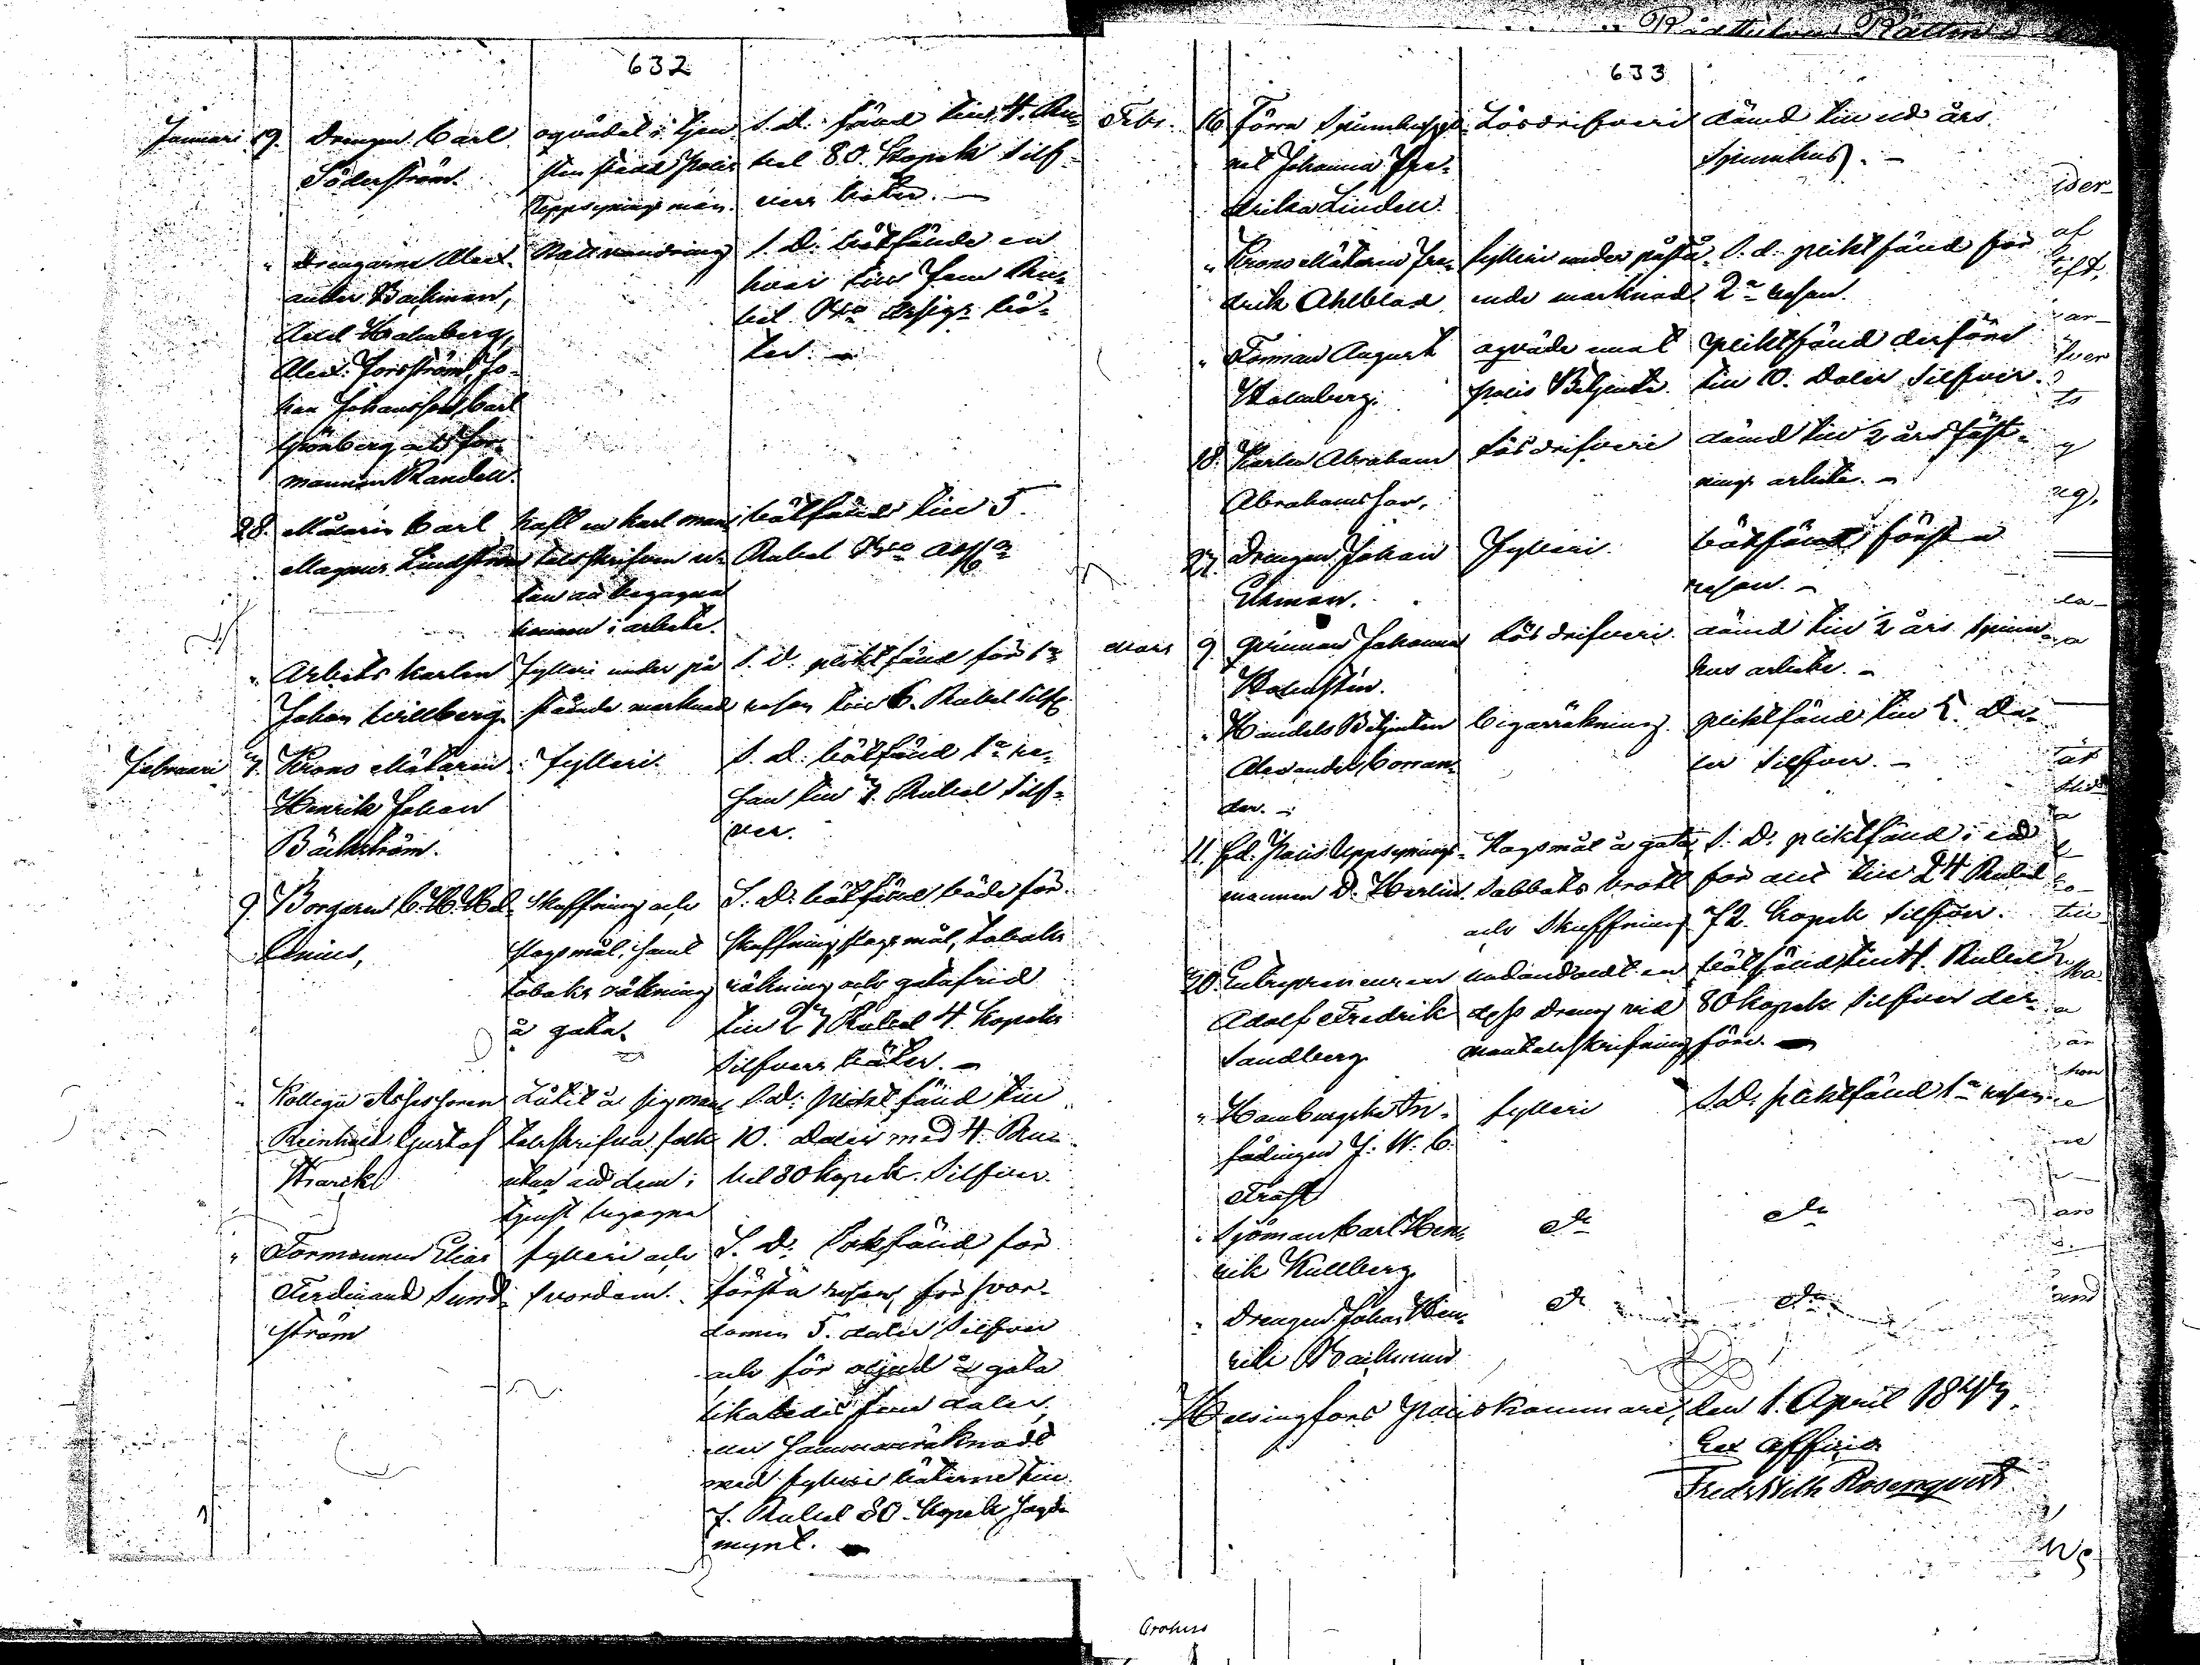 632
Januari 19. Drengen Carl
Söderström.
ogvädat i tjen-
sten stadd Polis
Uppsynings man.
S. D. fäld till 4. Ru-
bel 80. Kopek Silf-
vers böter. —
" Drengarne Alex-
ander Backman,
Holmberg,
Alex: Forsström, Jo-
han Johansson, Carl
Grönberg och for-
mannen Randell.
Nattvandring
S. D. bötfälde en
hvar till fem Ru-
bel
bö-
ter. —
28. Målaren Carl
Magnus Lindström
haft en karl man
talsskrifven u-
tan att begagna
honom i arbete.
bötfäld till 5.
Rubel
" Arbets karlen
Johan Willberg.
fylleri under på
stående marknad
S. D. pliktfäld för 1a
resan till 6. Rubel Silfr
Februari 7. Krono Mätaren
Henrik Johan
Bäckström.
fylleri.
S. D. bötfäld 1a re-
san till 7. Rubel Silf-
ver.
9. Borgaren C. H. Hel-
enius,
Skuffning och
slagsmål, samt
tobaks rökning
å gata.
S. D. bötfäld både för
skuffning, slagsmål, tobaks
rökning och gatufrid
till 27 Rubel 4. Kopek
Silfvers böter. —
" Kollegii Assessoren
Reinhold Gustaf
Låtit å sig man
talsskrifva folk
utan att dem i
tjenst begagna
S. D. pliktfäld till
10. Daler med 4. Ru-
bel 80 Kopek. Silfver.
" Formannen Elias
Ferdinand Sund-
ström
fylleri och
svordom.
S. D. Sakfäld för
första resan, för svor-
domen 5. daler Silfver
och för oljud å gata
likaledes fem daler,
eller sammanräknadt
med fylleri böterne till
7. Rubel 80. Kopek sagde
mynt. —
633
Rådstufvu Rätten
Febr. 16 Förra Spinnhushjo-
net Johanna Fre-
drika Lindell.
Lösdrifveri
dömd till ett års
Spinnhus. —
" Krono Mätaren Fre-
drik Ahlblad
fylleri under påstå-
ende marknad
S. d. pliktfäld för
2a resan.
" Forman August
Holmberg.
ogväde emot
Polis Betjente.
pliktfäld derföre
till 10. Daler Silfver.
18. Karlen Abraham
Abrahamsson,
Lösdrifveri
dömd till ½ års fäst-
nings arbete. —
27. Drengen Johan
Ekman.
Fylleri.
bötfäld första
resan. —
Mars 9. Qvinnan Johanna
Holmstén.
Lösdrifveri.
dömd till ½ års spinn-
hus arbete. —
" Handels Betjenten
Alexander Coran-
der. —
Cigarrökning.
pliktfäld till 5. Da-
ler Silfver. —
11. f.d. Polis Uppsynings-
mannen D. Herlin.
Slagsmål å gata,
Sabbats brott
och Skuffning
S. D. pliktfäld i ett
för allt till 24 Rubel
72. Kopek Silfver.
20. Entrepreneuren
Adolf Fredrik
Sandberg
undandoldt en
dess dreng vid
mantalsskrifning
bötfäld till 4. Rubel
80 Kopek Silfver der-
före. —
" Hamburgska In-
födingen J: W. C.
Frost
fylleri
S. D. pliktfäld 1a resan
" Sjöman Carl Hen-
rik Kullberg
do
do
" Drengen Johan Hen-
rik Backman
do
do
Helsingfors Poliskammare, den 1. April 1847.
Ex officio
Fredr Wilh Rosenqvist